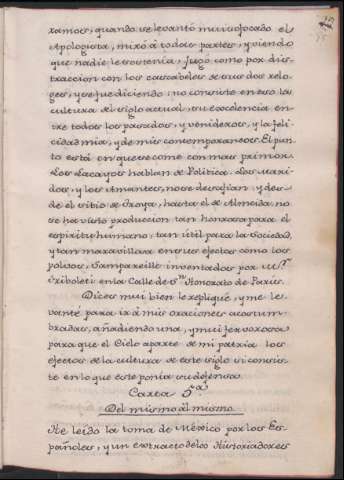 ramos, quando se levantó mui sofocado el
Apologista, miró a todas partes, y viendo
que nadie le sostenia, jugó como por dis-
traccion con los cascabeles de sus dos relo-
ges, y se fue diciendo, no consiste en eso la
cultura del siglo actual, su excelencia en-
tre todos los pasados, y venideros, y la feli-
cidad mia, y de mis contemporaneos. El pun-
to está en que se come con mas primor.
Los Lacayos hablan de Politica. Los Mari-
dos, y los Amantes, no se desafian, y des-
de el sitio de Troya, hasta el de Almeida, no
se ha visto produccion tan honrosa para el
espiritu humano, tan util para la Sociedad,
y tan maravillosa en sus efectos como los
polvos, Sampareille inventados por M.r
Friboleti en la Calle de S.n Honorato de Paris.
Dices mui bien le repliqué, y me le-
vanté para ir á mis oraciones acostum-
bradas, añadiendo una, y mui fervorosa
para que el Cielo aparte de mi patria los
efectos de la cultura de este siglo si consis-
te en lo que este ponia su defensa.
Carta 5.a
Del mismo al mismo.
He leído la toma de México por los Es-
pañoles, y un extracto de los Historiadores